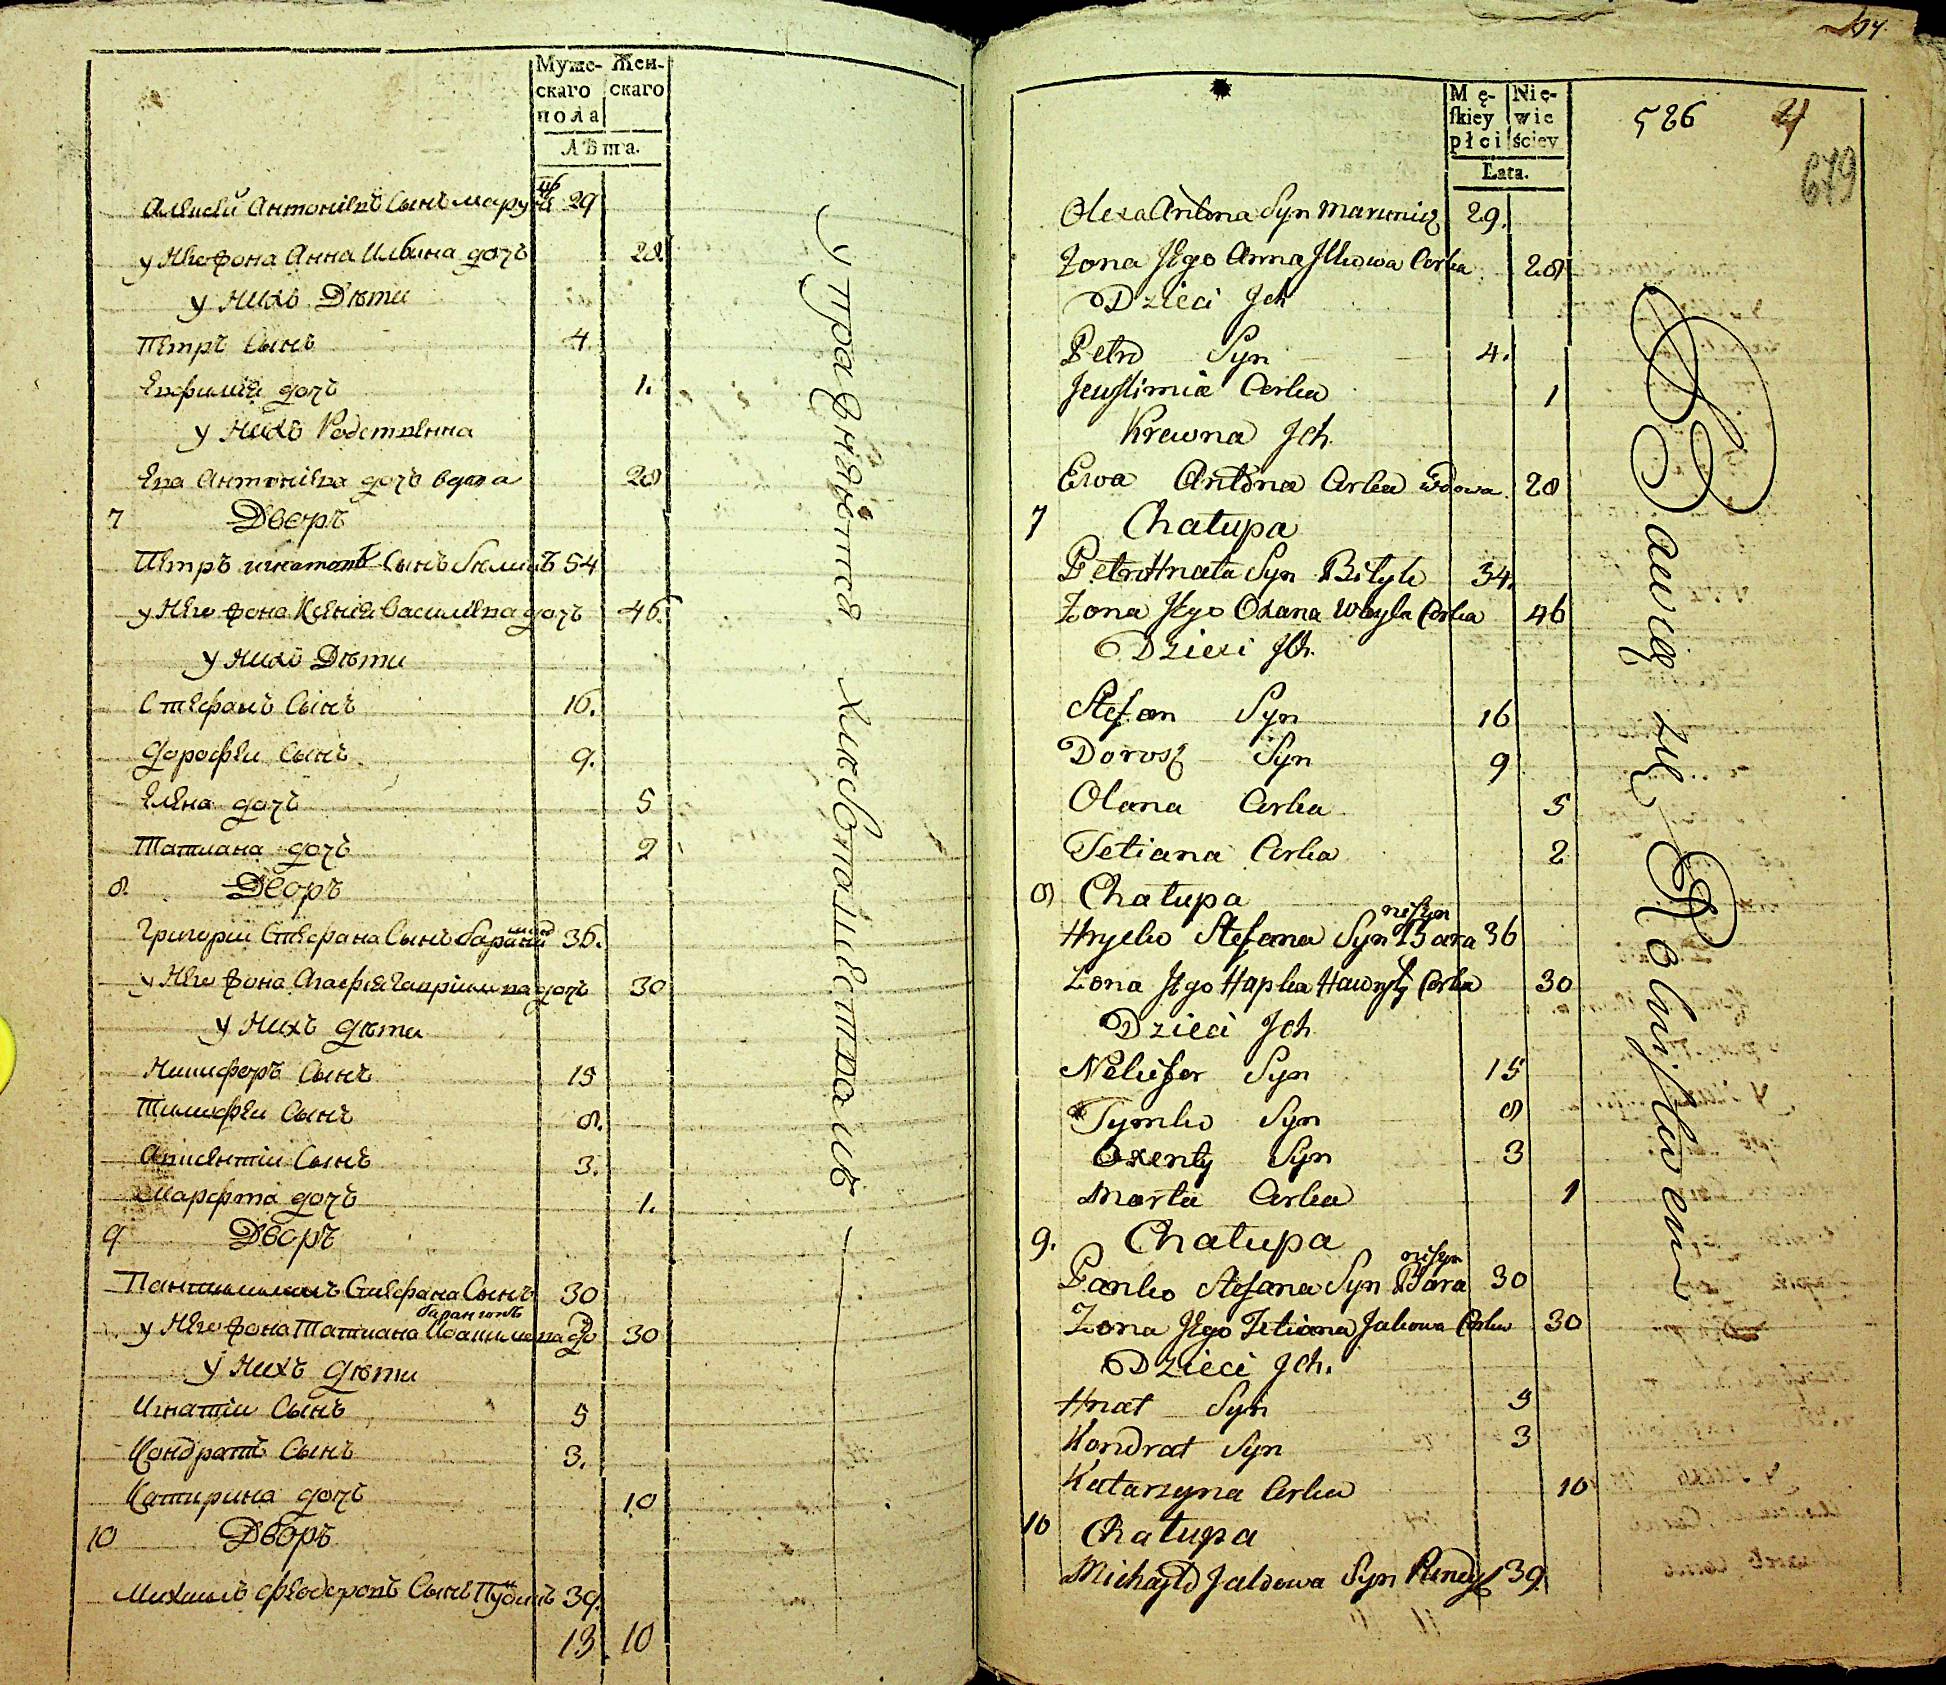 Муже-
скаго
пола
Жен-
скаго
Лѣта.
Алексѣй Антоніевъ Сынъ 29
у Него Жона Анна Ильина дочь 28
у Нихъ Дѣти
Петръ Сынъ 4
Евфимія дочь 1.
у Нихъ Родственна
Ева Антоніева дочь вдова 28
7 Дворъ
Петръ Игнатовъ Сынъ 54
у Него Жона Ксенія Василіева дочь 46.
у нихъ Дѣти
Стефанъ Сынъ 16.
Дорофей Сынъ 9.
Елена дочь 5
Татиана дочь 2
8. Дворъ
Григорій Стефана Сынъ 36.
у Него Жона Агафія Гавріилова дочь 30
у Нихъ дѣти
Никифоръ Сынъ 15
Тимофей Сынъ 8.
Авксентій Сынъ 3.
Марфта дочь 1.
9 Дворъ
Пантилимонъ Стефана Сынъ 30
у Него Жона Татиана 30
у Нихъ дѣти
Игнатій Сынъ 5
Кондратъ Сынъ 3.
Катирина дочь 10
10 Дворъ
Михаилъ Феодоровъ Сынъ 39.
13 10
упражняется хлебопашествомъ
Mę-
ſkiey
płci
Nie-
wie
ściey
Lata.
526 4
679
Olexa Antona Syn Marunicz 29.
Zona Jego Anna Jlkowa Corka 28
Dzieci Jch
Petro Syn 4.
Jewfimia Corka 1
Krewna Jch.
Ewa Antona Corka Wdowa 28
7 Chałupa
Petro Hnata Syn Biłyk 34.
Zona Jego Oxana Wasyla Corka 46
Dzieci Jch.
Stefan Syn 16
Dorosz Syn 9
Olana Corka 5
Tetiana Corka 2
8 Chałupa
Hryćko Stefana Syn Bara 36
niszyn
Zona Jego Hapka Hawryły Corka 30
Dzieci Jch
Nekifor Syn 15
Tymko Syn 8
Oxenty Syn 3
Marta Corka 1
9. Chałupa
Panko Stefana Syn Bara 30
niszyn
Zona Jego Tetiana Jakowa Corka 30
Dzieci Jch.
Hnat Syn 5
Kondrat Syn 3
Katarzyna Corka 10
10 Chałupa
Michayło Syn 39.
Bawią się Rolnictwem